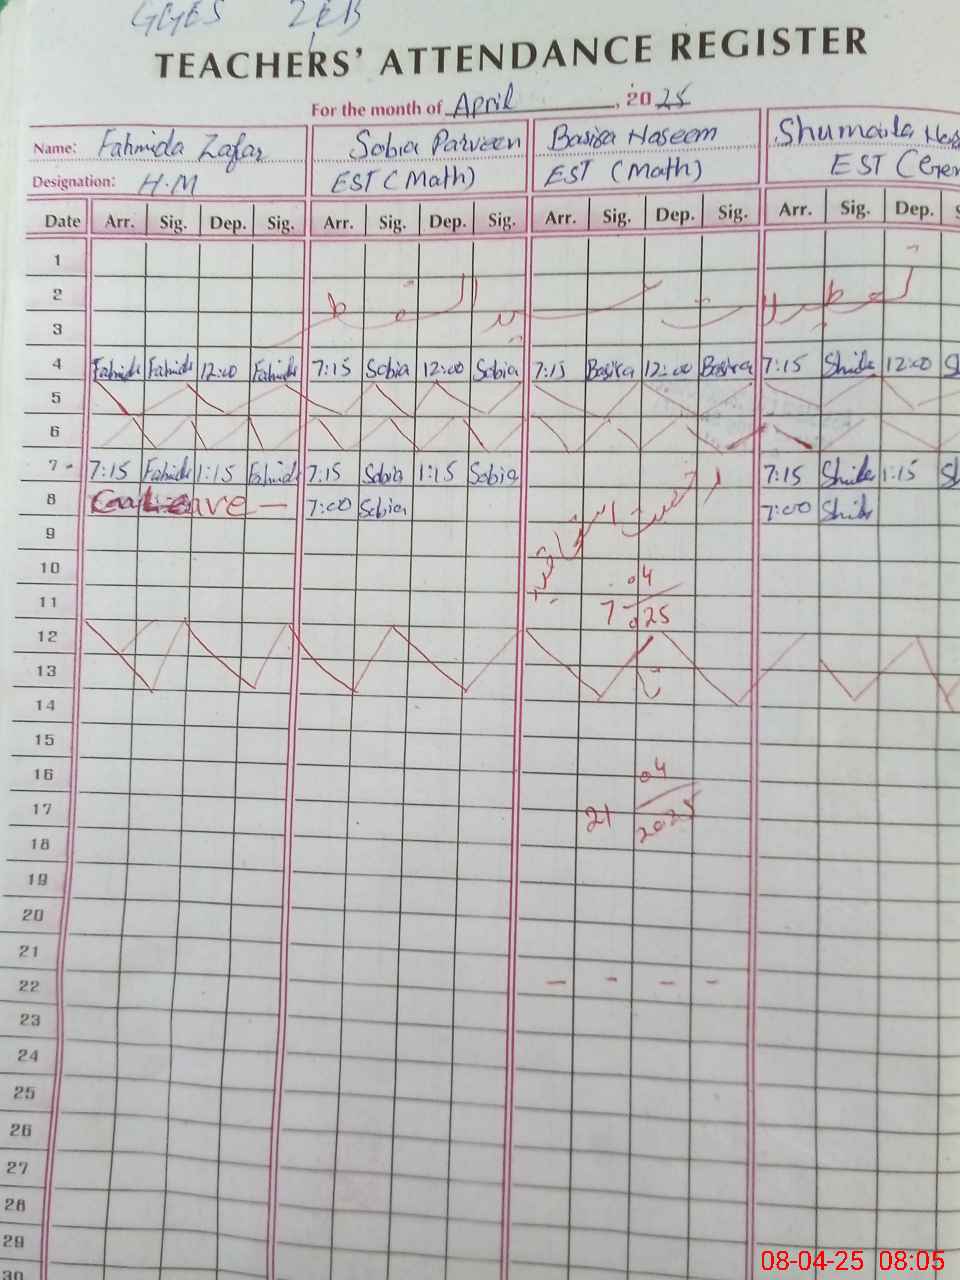 GGES 2EB
TEACHERS' ATTENDANCE REGISTER
For the month of April, 2025
Name: Fahmida Zafar Sobia Parveen Basira Naseem Shumaila
Designation: H.M EST (Math) EST (Math) EST (Gen
Date Arr. Sig. Dep. Sig. Arr. Sig. Dep. Sig. Arr. Sig. Dep. Sig. Arr. Sig. Dep. S
1
2
3
4 Fahmida Fahmida 12:00 Fahmida 7:15 Sobia 12:00 Sobia 7:15 Basira 12:00 Basira 7:15 12:00
5
6
7 7:15 Fahmida 1:15 Fahmida 7:15 Sobia 1:15 Sobia 7:15 1:15
رخصت
8 Leave — 7:00 Sobia 7:00
9
10
11 7 04/025
12
13
14
15
16
17 21 04/2025
18
19
20
21
22 - - - -
23
24
25
26
27
28
29
30
08-04-25 08:05